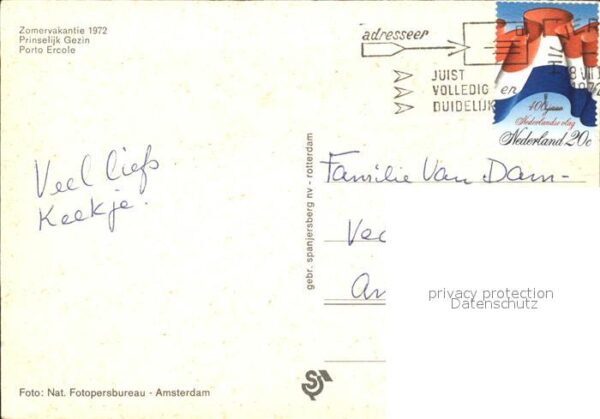 Zomervakantie 1972
Prinselijk Gezin
Porto Ercole
adresseer
JUIST
VOLLEDIG en
DUIDELIJK
8 VII
1972
400 jaar
Nederlandse vlag
Nederland 20c
Veel liefs
Keekje!
gebr. spanjersberg nv - rotterdam
Familie Van Dam-
privacy protection
Datenschutz
Foto: Nat. Fotopersbureau - Amsterdam